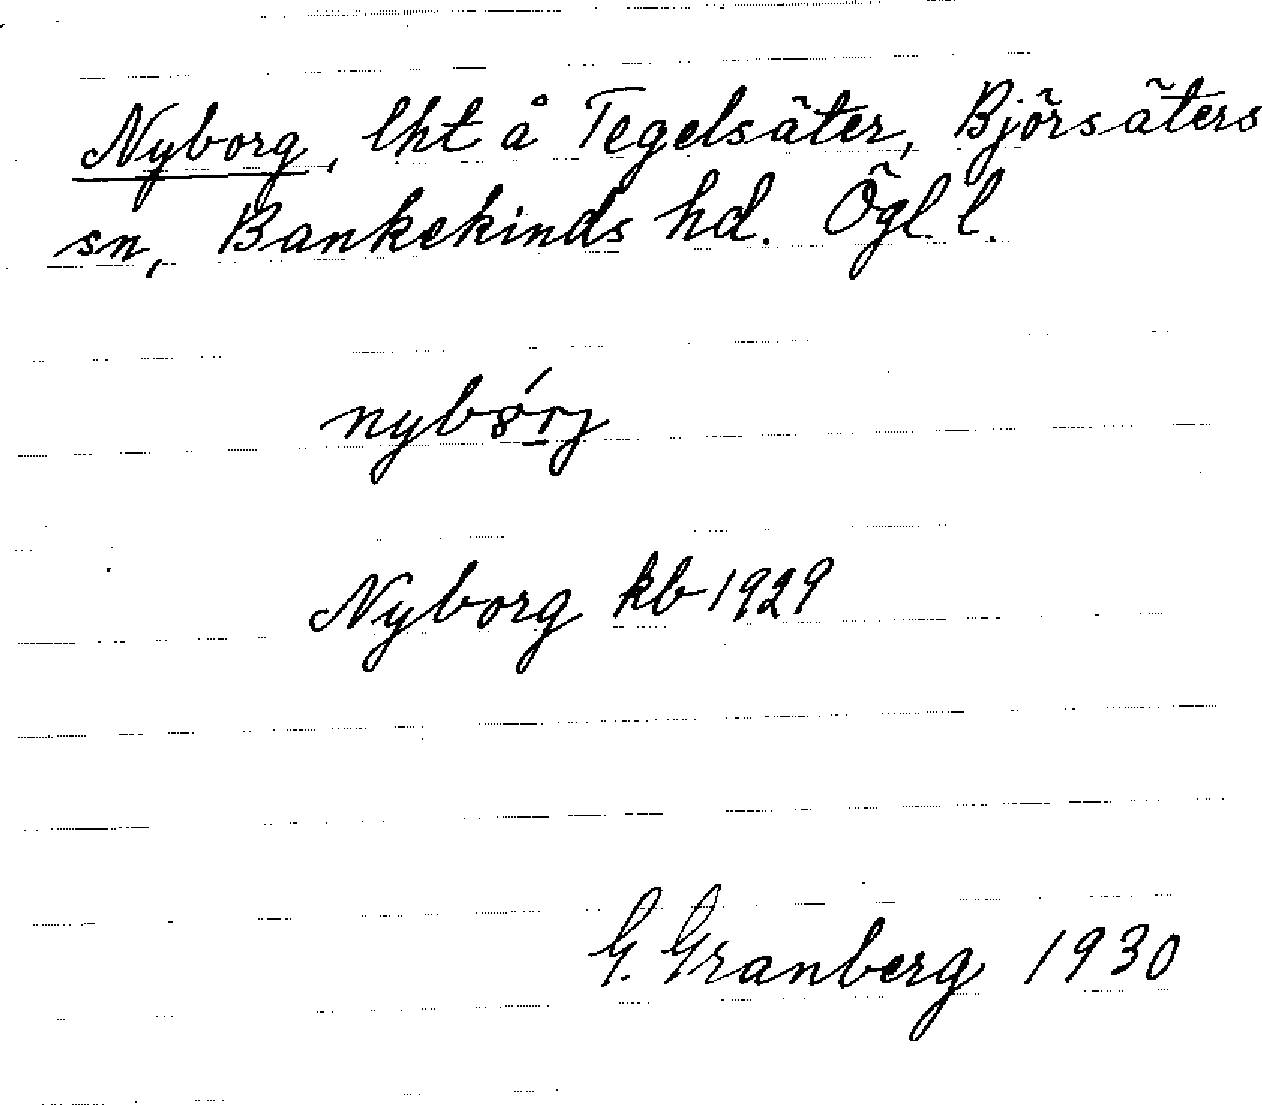 Nyborg, lht å Tegelsäter, Björsäters
sn, Bankekinds hd. Ögl. l.
Nyborg kb 1929
G. Granberg 1930